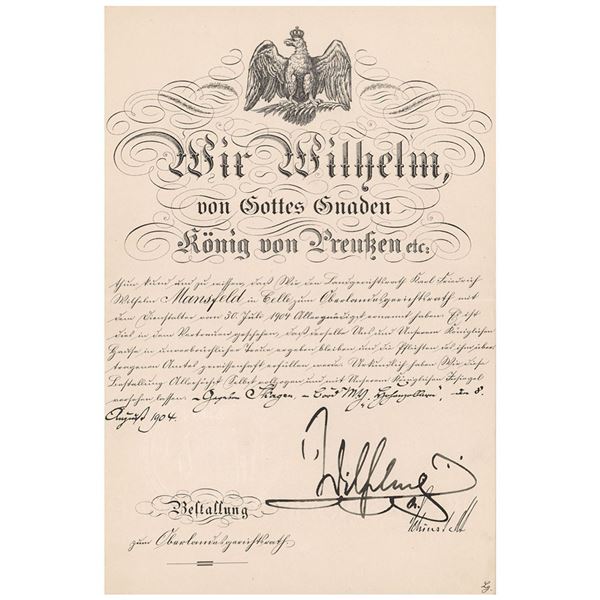 Wir Wilhelm,
von Gottes Gnaden
König von Preußen etc:
thun kund und zu wissen, daß Wir den Landgerichtsrath Karl Friedrich
Wilhelm Mansfeld in Celle zum Oberlandesgerichtsrath mit
dem Dienstalter vom 30. Juli 1904 Allergnädigst ernannt haben. Es ist
dies in dem Vertrauen geschehen, daß derselbe Uns und Unserem Königlichen
Hause in unverbrüchlicher Treue ergeben bleiben und die Pflichten des ihm über-
tragenen Amtes gewissenhaft erfüllen werde. Urkundlich haben Wir diese
Bestallung Allerhöchst Selbst vollzogen und mit Unserem Königlichen Insiegel
versehen lassen. Gegeben Skagen, an Bord M.Y. „Hohenzollern", den 8.
August 1904.
Wilhelm
Bestallung
zum Oberlandesgerichtsrath.